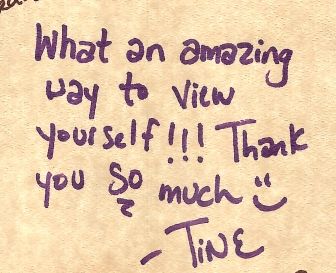 What an amazing
way to view
yourself!!! Thank
you so much :)
- TINE